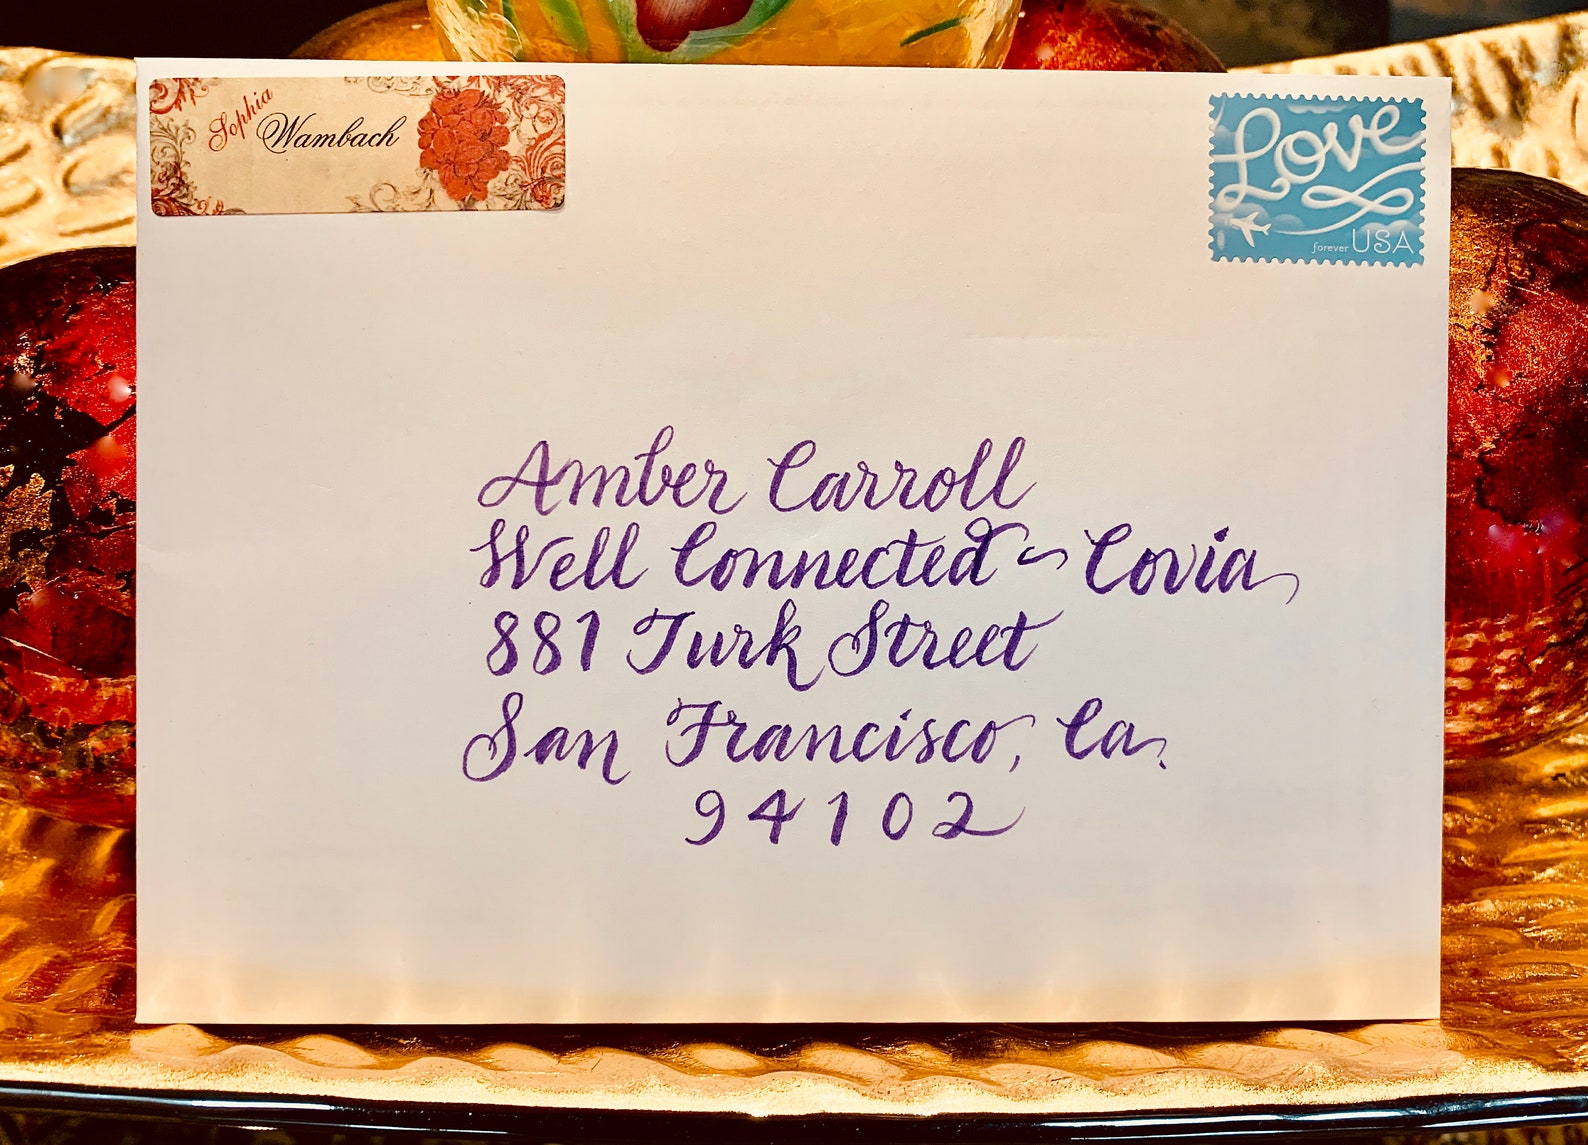 Sophia
Wambach
Love
forever USA
Amber Carroll
Well Connected ~ Covia
881 Turk Street
San Francisco, Ca.
94102